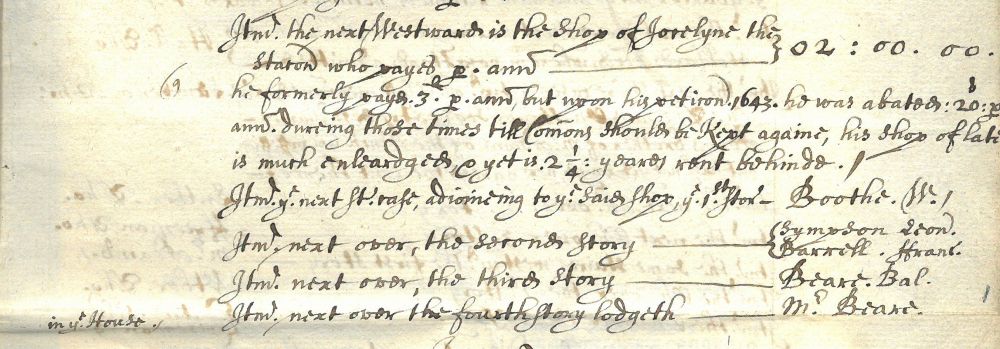 Itm. the next Westward is the Shop of Jocelyne the } 02 : 00. 00.
Stacon̄ who payes p. ann̄
he formerly payed. 3ˡⁱ. p. ann̄, but upon his peticon̄. 1643. he was abated: 20ˢ: p
ann̄. dureing those times till Com̄ons should be Kept againe, his shop of late
is much enleardged & yet is. 2 1/4: yeares rent behinde. /
Itm. yᵉ. next St: case, adioineing to yᵉ said shop, yᵉ. 1ˢᵗ Stor– Boothe. W. /
Itm. next over, the second story { Sympson Leon̄.
Barrell. ffranc.
Itm. next over, the third story Beare. Bal.
in yᵉ House. / Itm. next over the fourth story lodgeth Mʳ Beare.